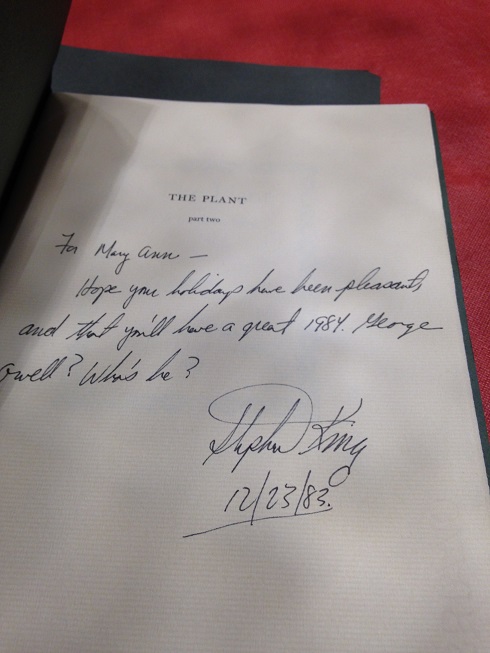 THE PLANT
part two
For Mary Ann —
Hope your holidays have been pleasant
and that you'll have a great 1984. George
Orwell? Who's he?
Stephen King
12/23/83.